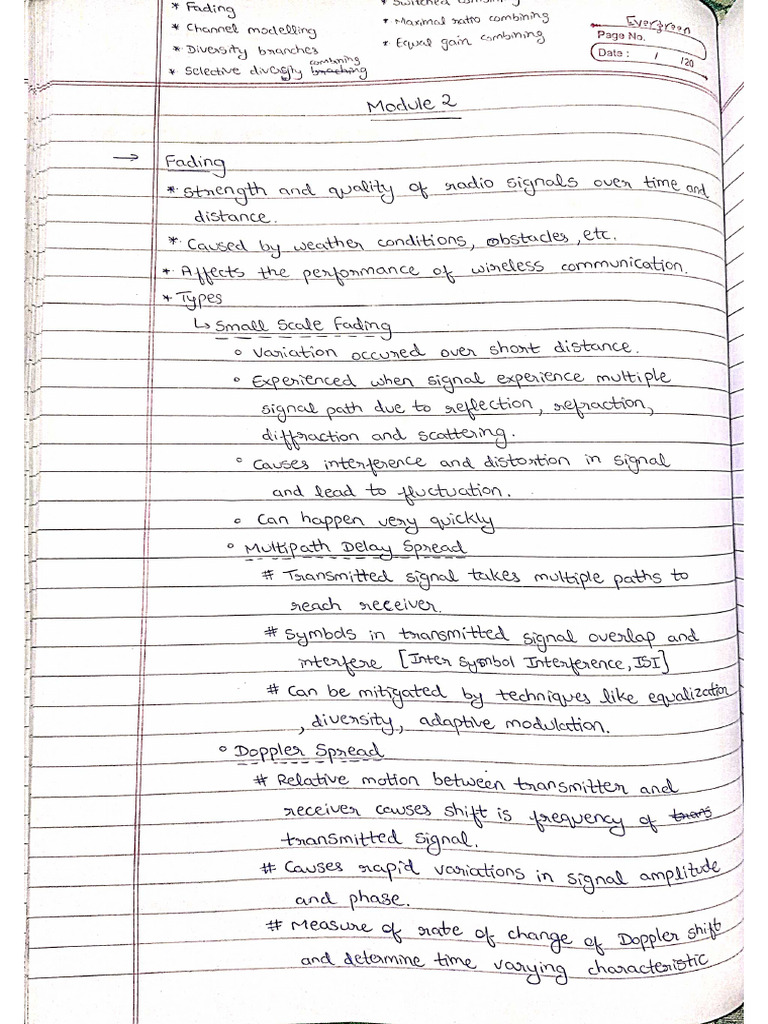 * Fading
* Channel modelling
* Diversity branches
* Selective diversity combining
* Switched
* Maximal ratio combining
* Equal gain combining
Evergreen
Page No.
Date : / /20
Module 2
→ Fading
* Strength and quality of radio signals over time and
distance.
* Caused by weather conditions, obstacles, etc.
* Affects the performance of wireless communication.
* Types
↳ Small Scale Fading
○ Variation occured over short distance.
○ Experienced when signal experience multiple
signal path due to reflection, refraction,
diffraction and scattering.
○ Causes interference and distortion in signal
and lead to fluctuation.
○ Can happen very quickly
○ Multipath Delay Spread
# Transmitted signal takes multiple paths to
reach receiver.
# Symbols in transmitted signal overlap and
interfere [Inter Symbol Interference, ISI]
# Can be mitigated by techniques like equalization
, diversity, adaptive modulation.
○ Doppler Spread
# Relative motion between transmitter and
receiver causes shift is frequency of trans
transmitted signal.
# Causes rapid variations in signal amplitude
and phase.
# Measure of rate of change of Doppler shift
and determine time varying characteristic